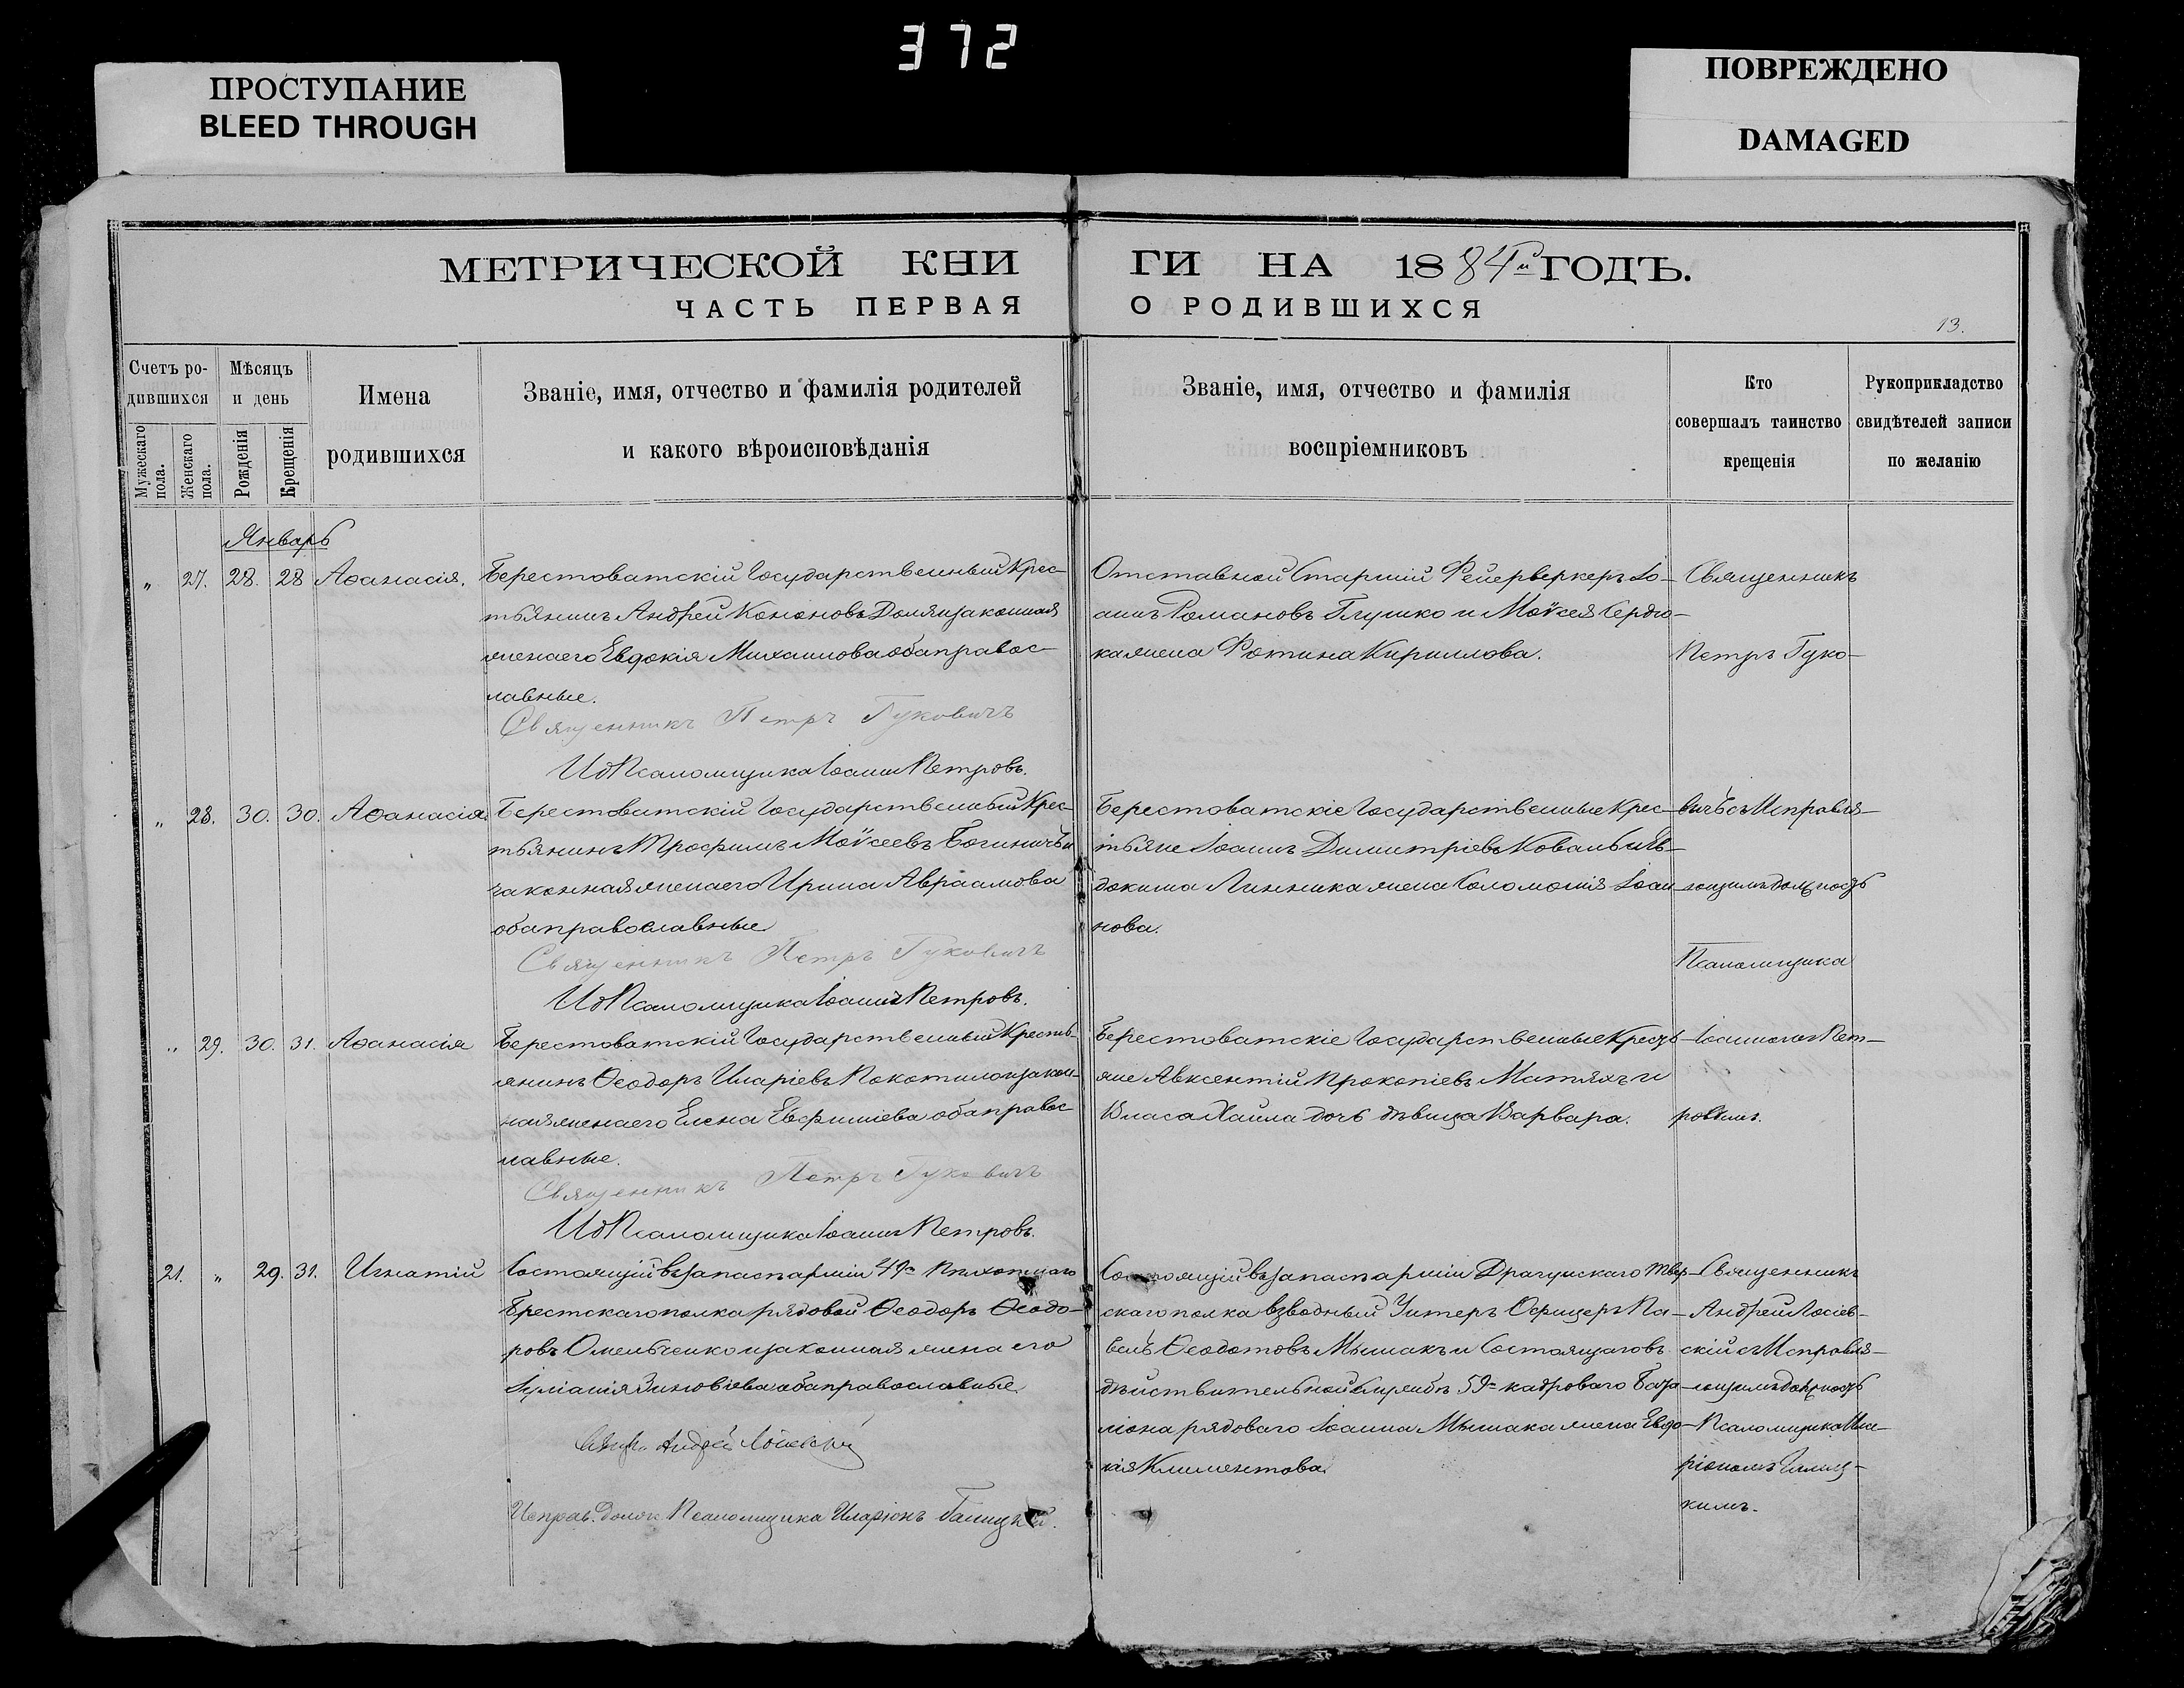 372
ПРОСТУПАНИЕ
BLEED THROUGH
ПОВРЕЖДЕНО
DAMAGED
МЕТРИЧЕСКОЙ КНИ
ГИ НА 1884й ГОДЪ.
ЧАСТЬ ПЕРВАЯ
О РОДИВШИХСЯ
13.
Счетъ ро-
дившихся
Мужескаго пола.
Женскаго пола.
Мѣсяцъ
и день
Рожденія
Крещенія
Имена
родившихся
Званіе, имя, отчество и фамилія родителей
и какого вѣроисповѣданія
Званіе, имя, отчество и фамилія
воспріемниковъ
Кто
совершалъ таинство
крещенія
Рукоприкладство
свидѣтелей записи
по желанію
Январь
" 27. 28. 28 Аѳанасія.
Берестоватскій Государственный Крес-
тьянинъ Андрей Кононовъ Доля и законная
жена его Евдокія Михаилова оба правос-
лавные.
Священникъ Петръ Гуковичъ
И д Псаломщика Іоаннъ Петровъ.
Отставной Старшій Фейерверкеръ Іо-
аннъ Романовъ Глушко и Моѵсея Сердю-
ка жена Фотина Кириллова.
Священникъ
Петръ Гуко-
" 28. 30. 30. Аѳанасія
Берестоватскій Государственный Крес-
тьянинъ Трофимъ Моѵсеевъ Богиничъ и
законная жена его Ирина Авраамова
оба православные
Священникъ Петръ Гуковичъ
И д Псаломщика Іоаннъ Петровъ.
Берестоватскіе Государственные Крес-
тьяне Іоаннъ Димитріевъ Коваль и Ев-
докима Линника жена Соломонія Іоан
нова.
вичъ съ Исправля-
ющимъ должность
Псаломщика
" 29. 30. 31. Аѳанасія
Берестоватскій Государственный Кресть-
янинъ Ѳеодоръ Иларіевъ Покотило и закон-
ная жена его Елена Евфиміева оба правос
лавные.
Священникъ Петръ Гуковичъ
И д Псаломщика Іоаннъ Петровъ.
Берестоватскіе Государственные Кресть-
яне Авксентій Прокопіевъ Матяхъ и
Власа Хаила дочь дѣвица Варвара.
Іоанномъ Пет-
ровымъ.
21. " 29. 31. Игнатій
Состоящій въ запасѣ арміи 49го Пѣхотнаго
Брестскаго полка рядовой Ѳеодоръ Ѳеодо-
ровъ Омельченко и законная жена его
Іуліанія Зиновіева оба православные.
Свящ. Андрей Лосіевскій
Исправ. долж. Псаломщика Иларіонъ Галицкій.
Состоящій въ запасѣ арміи Драгунскаго Твер-
скаго полка взводный Унтеръ Офицеръ Па-
велъ Ѳеодотовъ Мышакъ и Состоящаго въ
дѣйствительной службѣ 59го кадроваго Бата-
ліона рядоваго Іоанна Мышака жена Евдо-
кія Климентова.
Священникъ
Андрей Лосіев-
скій съ Исправля-
ющимъ должность
Псаломщика Ила-
ріономъ Галиц-
кимъ.